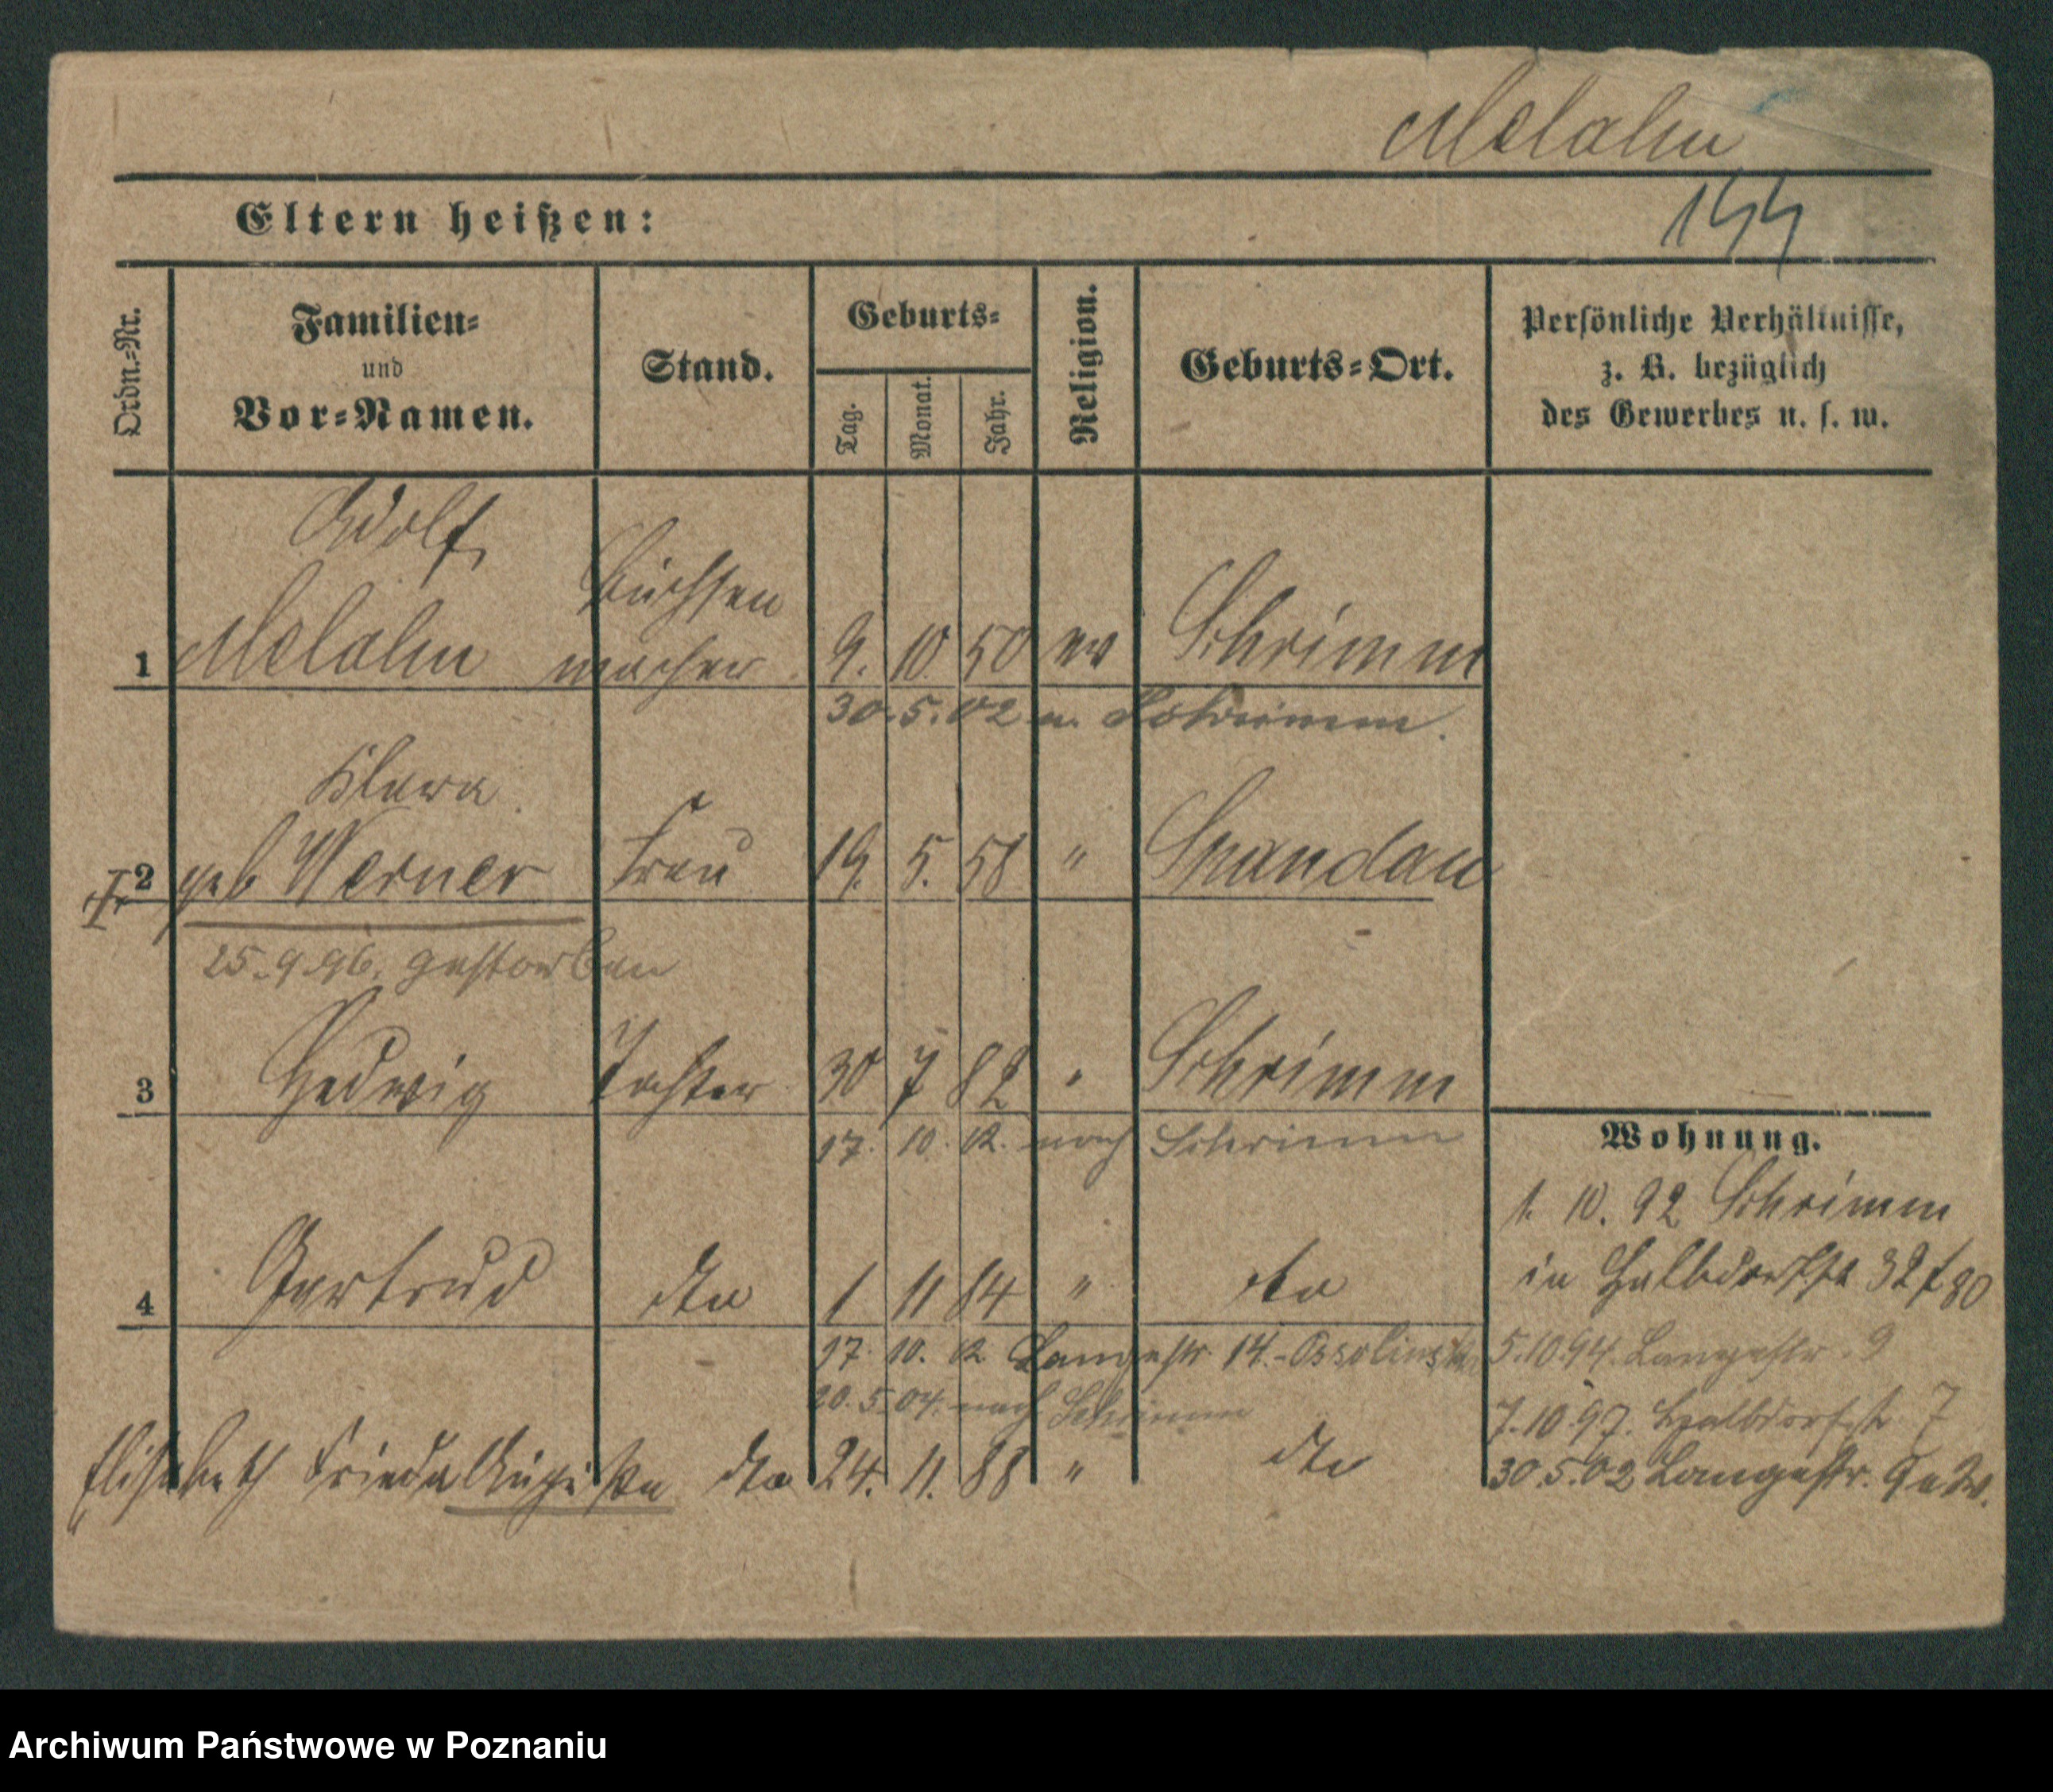 Melahn
144
Eltern heißen:
Ordn.-Nr.
Familien-
und
Vor-Namen.
Stand.
Geburts-
Tag.
Monat.
Jahr.
Religion.
Geburts-Ort.
Persönliche Verhältnisse,
z. B. bezüglich
des Gewerbes u. s. w.
Adolf
Büchsen
1 Melahn macher 9. 10 50 ev Schrimm
30.5.02 n. Schrimm.
Klara
2 geb Werner Frau 19. 5. 58 " Spandau
25.9.96. gestorben
3 Hedwig Tochter 30 7 82 " Schrimm
17. 10. 12. nach Schrimm
Wohnung.
1. 10. 92 Schrimm
in Halbdorfstr 32
4 Gertrud dto 1 11 84 " dto
17. 10. 12 Langestr 14.-
5.10.94. Langestr. 9
20.5.04. nach Schrimm
7.10.97. Halbdorfstr 7
Elisabeth Frieda Auguste dto 24. 11. 88 " dto
30.5.02 Langestr. 9
Archiwum Państwowe w Poznaniu